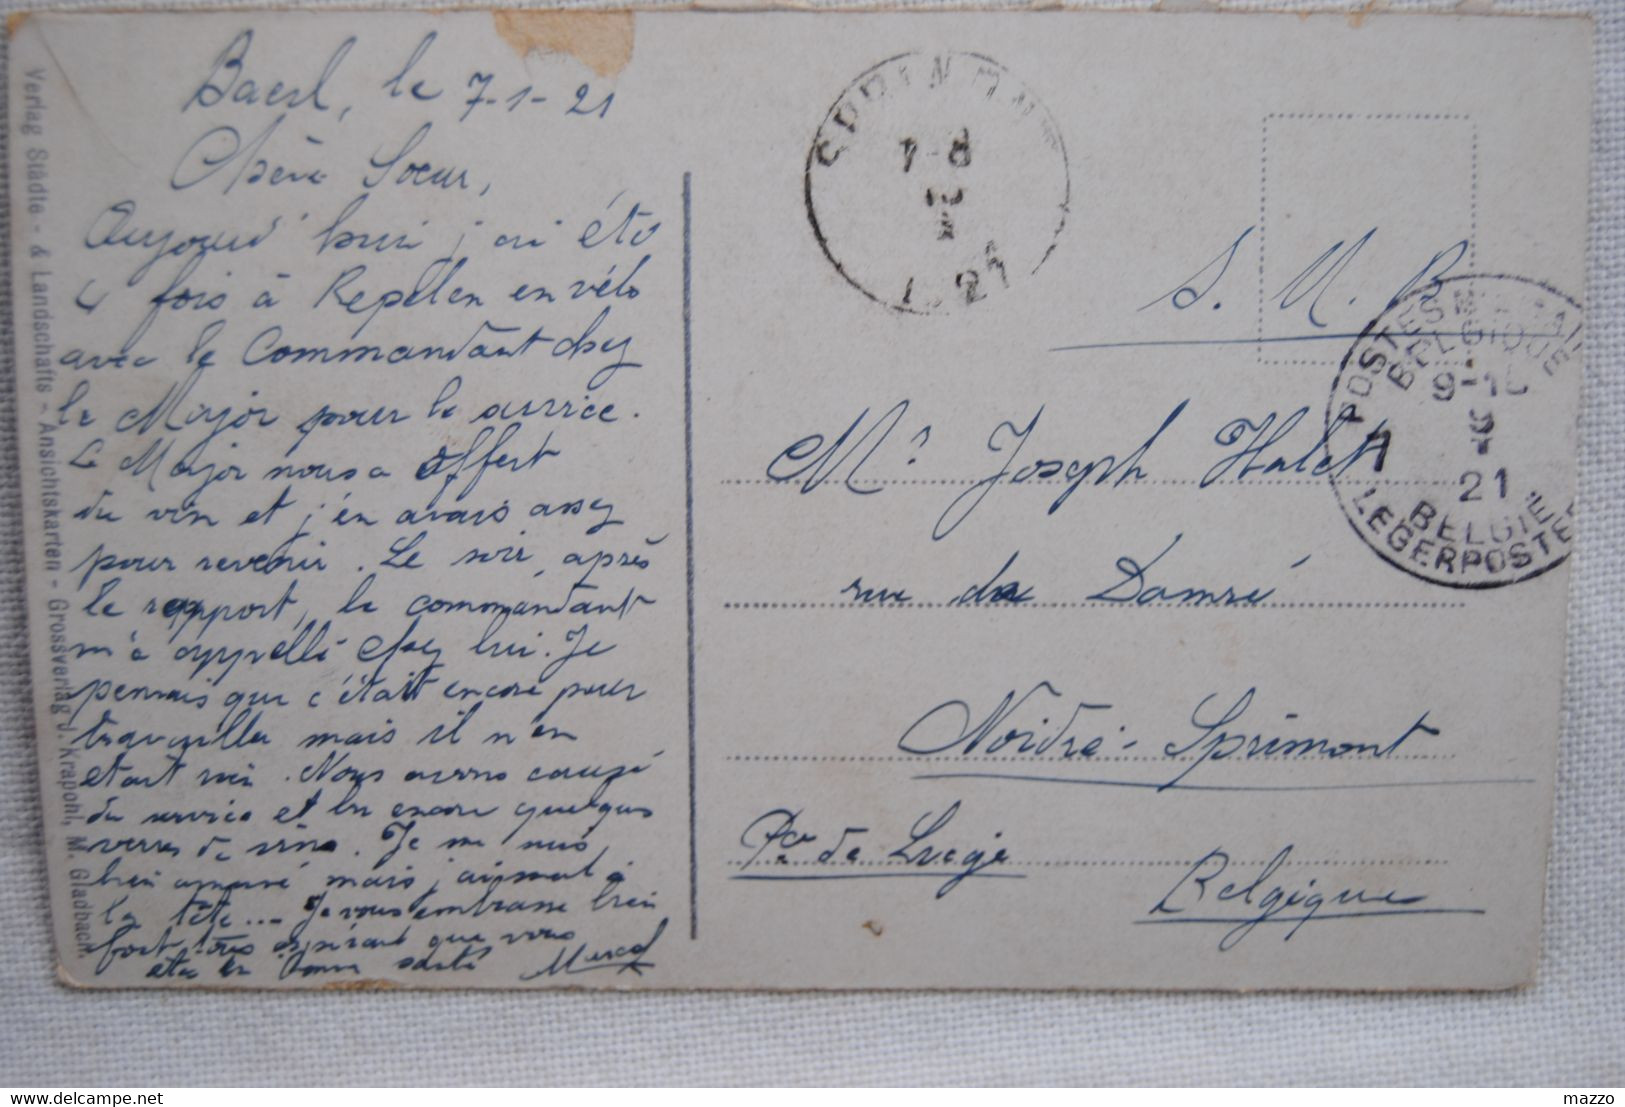 Baerl, le 7-1-21
Chère Soeur,
Aujourd'hui j'ai été
4 fois à Repelen en vélo
avec le Commandant chez
le Major pour le service.
Le Major nous a offert
du vin et j'en avais assez
pour revenir. Le soir, après
le rapport, le commandant
m'a appellé chez lui. Je
pensais que c'était encore pour
travailler mais il n'en
était rien. Nous avons causé
du service et bu encore quelques
verres de vins. Je me suis
bien amusé mais j'ai mal à
la tête... Je vous embrasse bien
fort tous espérant que vous
êtes en bonne santé Marcel
Verlag Städte- & Landschafts-Ansichtskarten - Grossverlag J. Krapohl, M. Gladbach.
SPRIMONT
7-8
1921
S. M. B
POSTES MILITAIRES
BELGIQUE
9-10
21
BELGIE
LEGERPOSTERIJ
Mr Joseph Halet
rue de Damré
Noidré-Sprimont
Pce de Liège
Belgique
mazzo